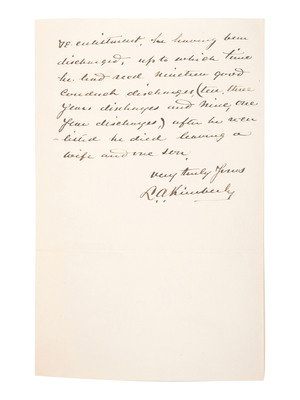 re enlistment. In having been
discharged, up to which time
he had rec'd nineteen good
Conduct discharges (ten, three
years discharges and nine, one
year discharges,) after he reen
-listed he died leaving a
wife and one son.
very truly Yours
L.A. Kimberly